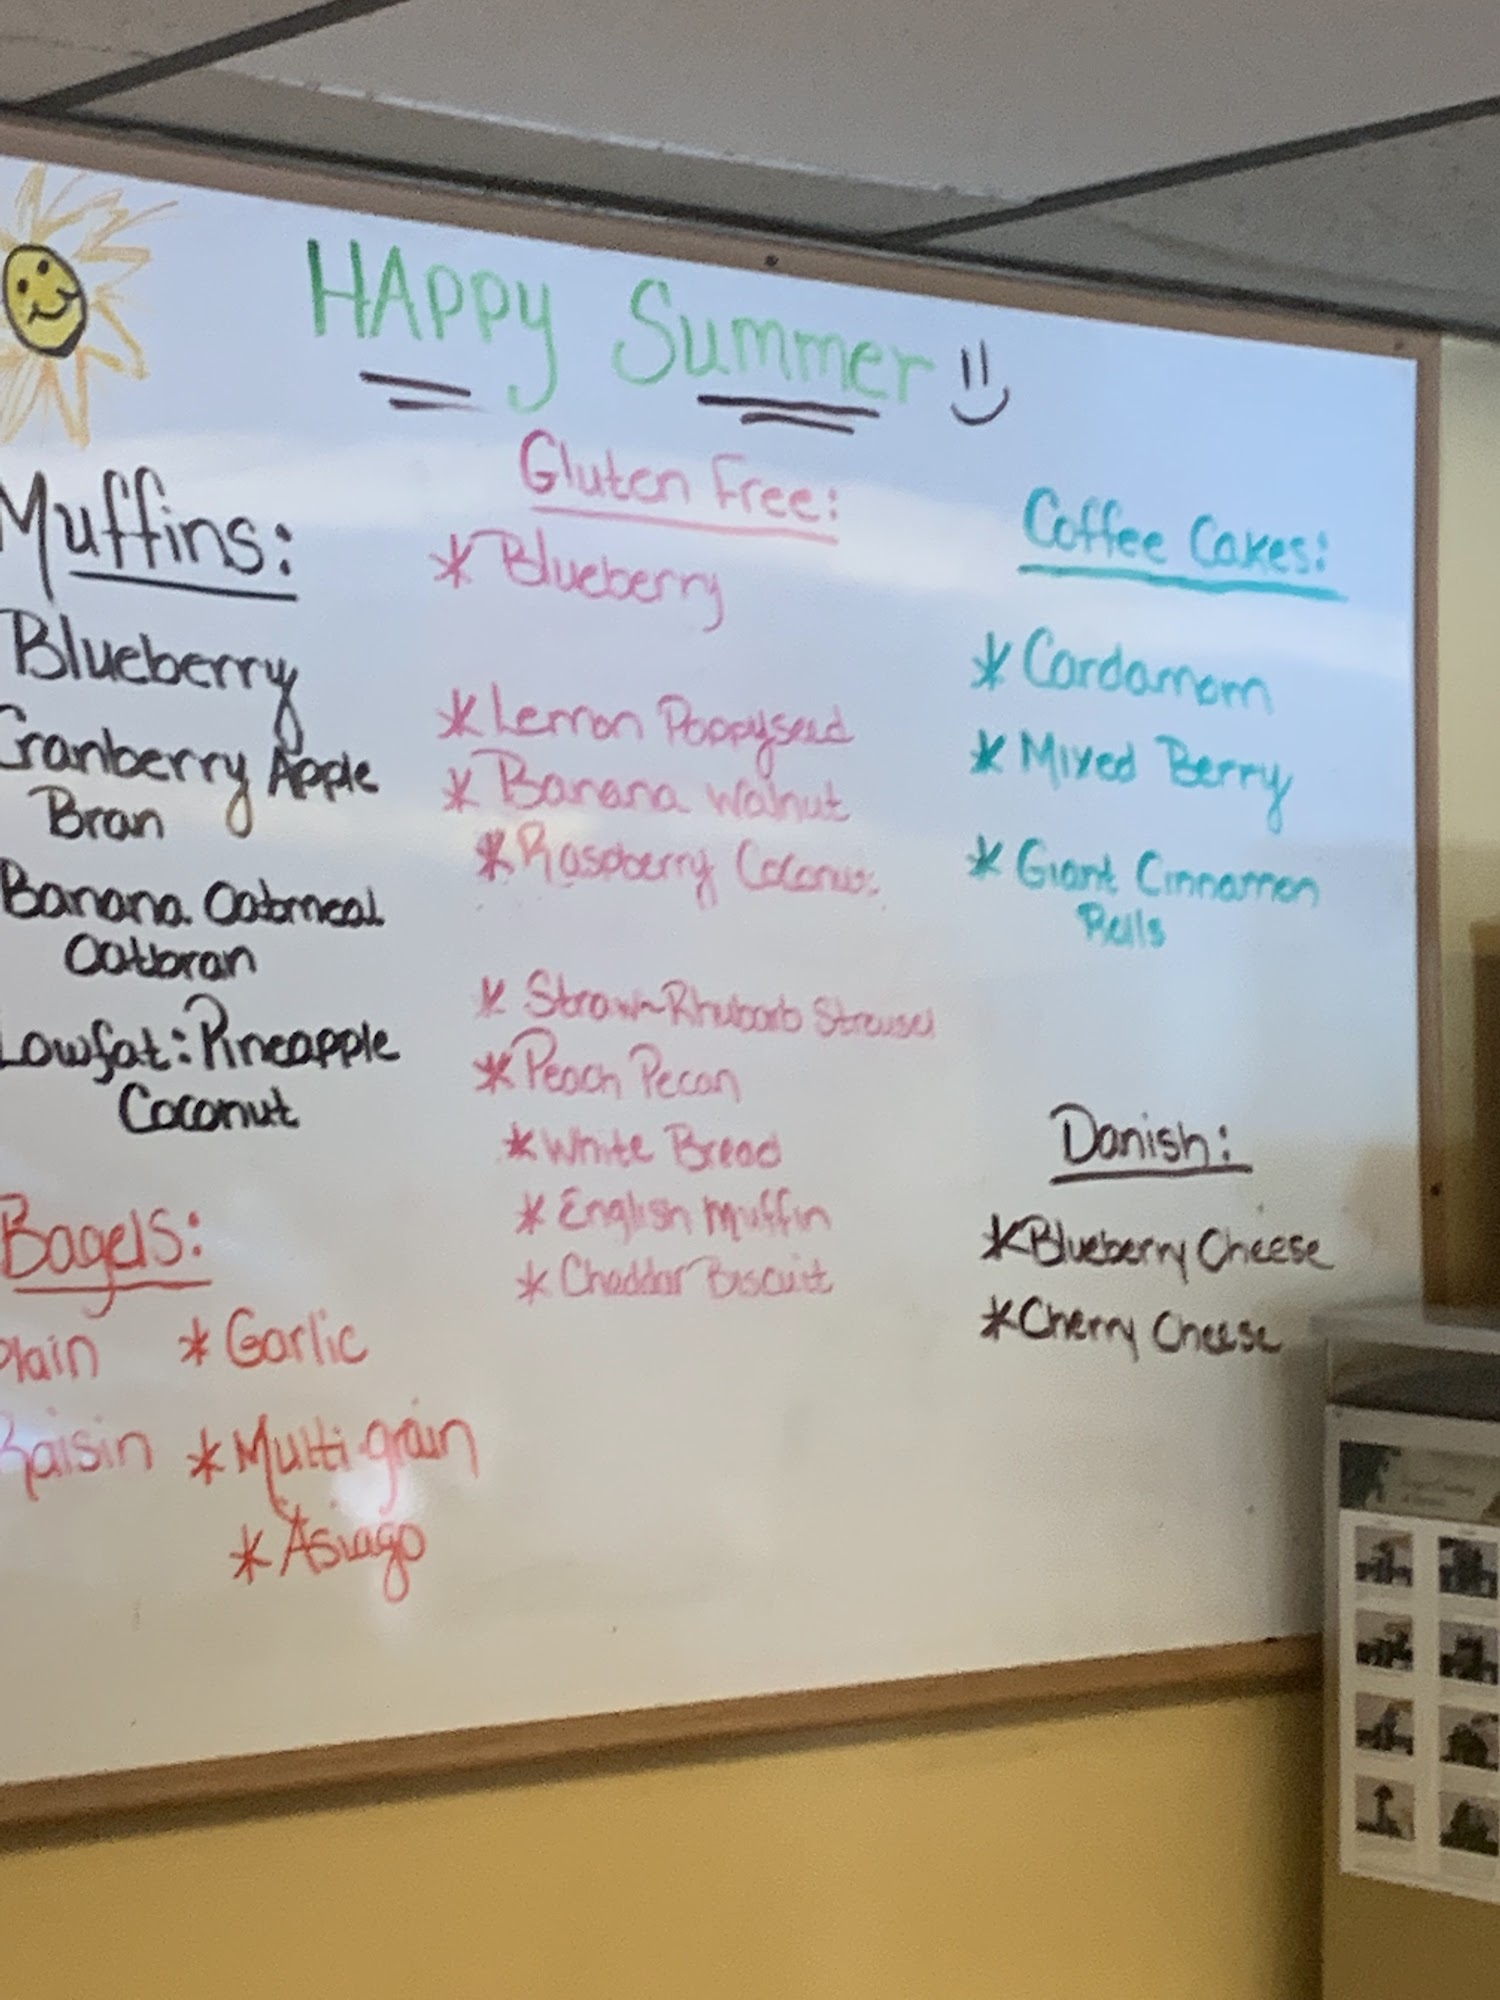 HAppy Summer
Muffins:
Blueberry
Cranberry Apple
Bran
Banana Oatmeal
Oatbran
Lowfat: Pineapple
Coconut
Bagels:
Plain * Garlic
Raisin * Multi grain
* Asiago
Gluten Free:
* Blueberry
* Lemon Poppyseed
* Banana Walnut
* Raspberry Coconut
* Straw-Rhubarb Streusel
* Peach Pecan
* White Bread
* English Muffin
* Cheddar Biscuit
Coffee Cakes:
* Cardamom
* Mixed Berry
* Giant Cinnamon
Rolls
Danish:
* Blueberry Cheese
* Cherry Cheese